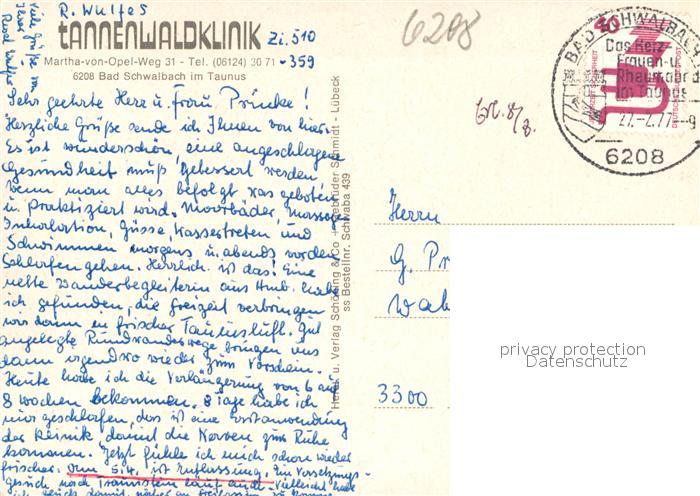 R. Wulfes
TANNENWALDKLINIK Zi. 510
Martha-von-Opel-Weg 31 - Tel. (06124) 30 71 -359
6208 Bad Schwalbach im Taunus
Sehr geehrte Herr u. Frau Princke!
Herzliche Grüße sende ich Ihnen von hier.
Es ist wunderschön, eine angeschlagene
Gesundheit muß gebessert werden
wenn man alles befolgt was geboten
u. praktiziert wird. Moorbäder, Massagen
Inhalation, Güsse, Wassertreten und
Schwimmen morgens u. abends vor dem
Schlafen gehen. Herrlich ist das! Eine
nette Wanderbegleiterin aus Hmb. habe
ich gefunden, die Freizeit verbringen
wir dann in frischer Taunusluft. Gut
angelegte Rundwanderwege bringen uns
dann irgendwo wieder zum Vorschein.
Heute habe ich die Verlängerung von 6 auf
8 Wochen bekommen. 8 Tage habe ich
nur geschlafen, das ist eine Erstanwendung
der Klinik damit die Nerven zur Ruhe
kommen. Jetzt fühle ich mich schon wieder
frischer. Am 5.4. ist Entlassung. Ein Versetzungs-
gesuch nach Traunstein läuft auch. Vielleicht habe
ich
Viele Grüße von
Ihrer
Herst. u. Verlag Schöning & Co + Gebrüder Schmidt - Lübeck
ss Bestellnr. Schwaba 439
6208
BAD SCHWALBACH
Das Herz-
Frauen-u
Rheumabad
im Taunus
27.-2.77--9
6208
40
DEUTSCHE BUNDESPOST
Herrn
G. Pr
Wah
3300
privacy protection
Datenschutz